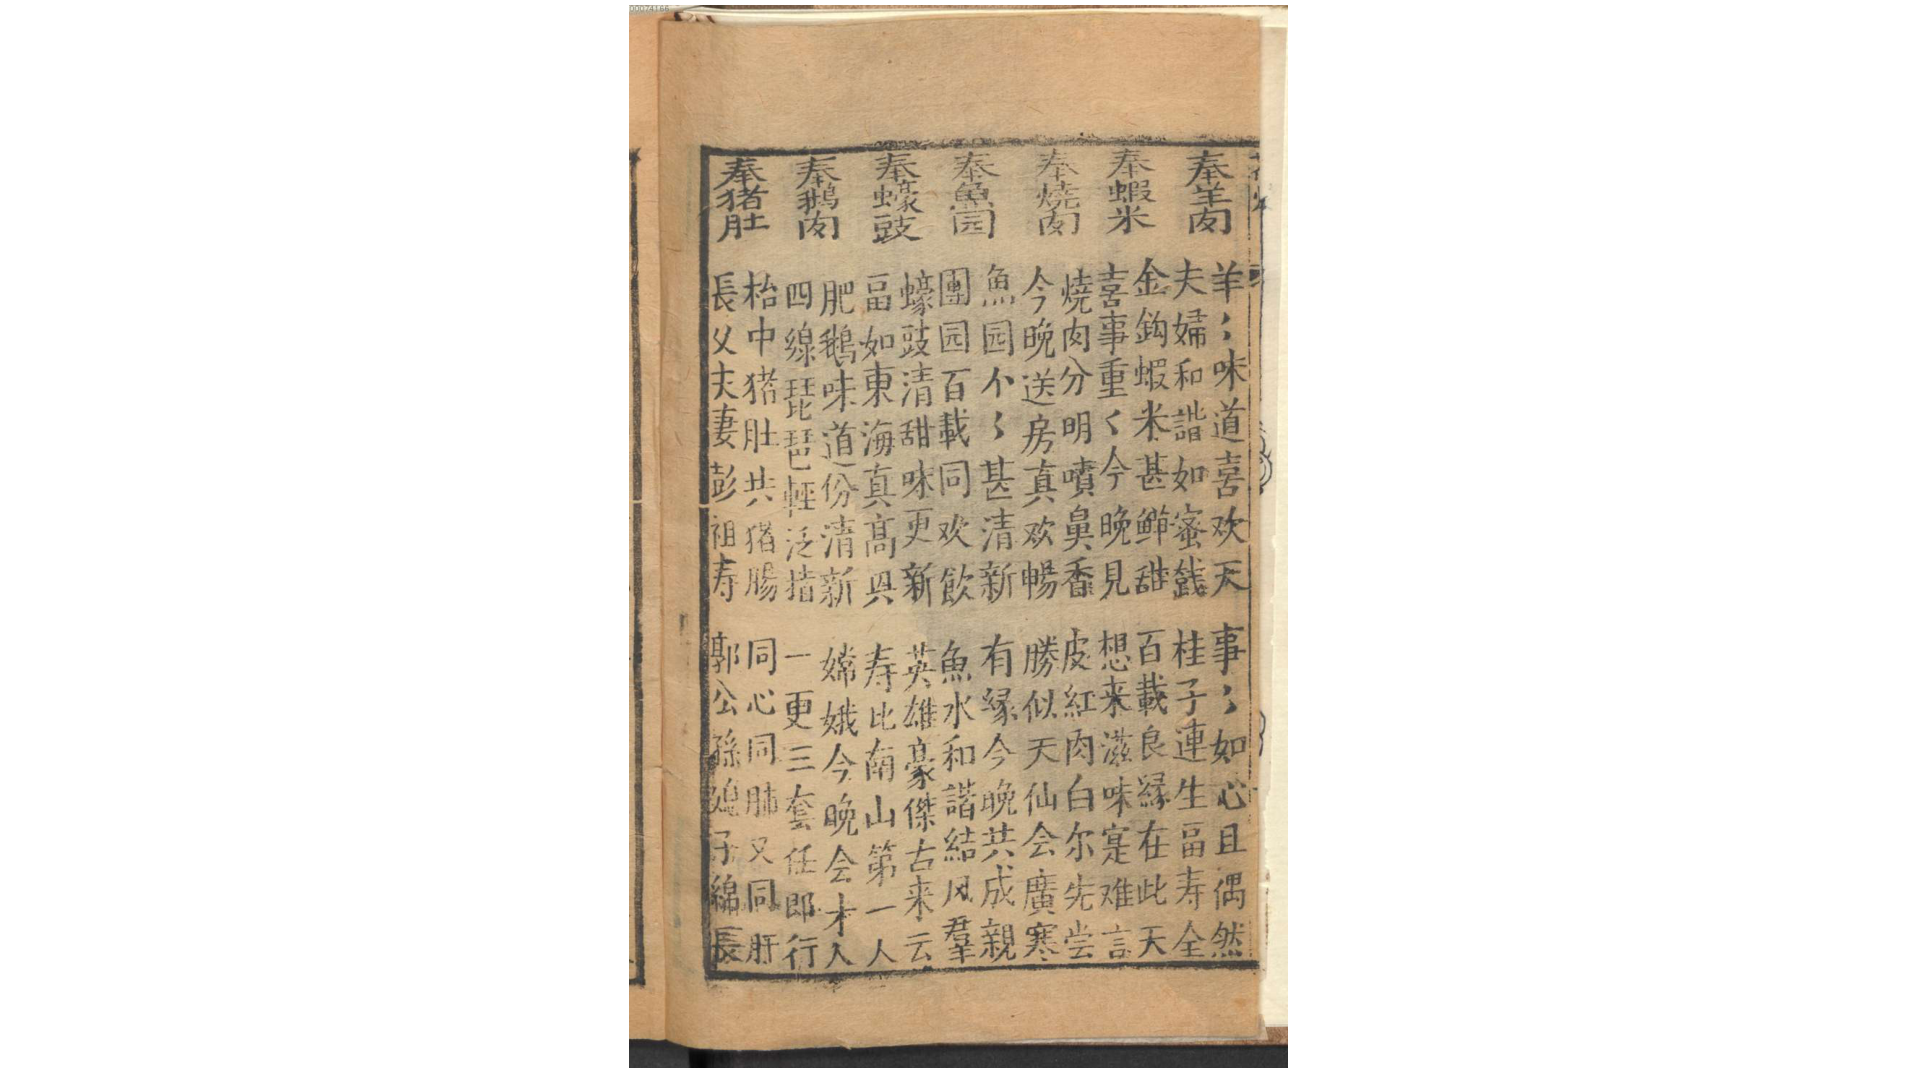 奉羊肉
羊〻味道喜欢天　事〻如心且偶然
夫婦和諧如蜜餞　桂子連生畐寿全
奉蝦米
金鈎蝦米甚鮮甜　百載良緣在此天
喜事重〻今晚見　想来滋味寔难言
奉燒肉
燒肉分明噴鼻香　皮紅肉白尔先尝
今晚送房真欢暢　勝似天仙会廣寒
奉魚园
魚园个〻甚清新　有緣今晚共成親
團园百載同欢飲　魚水和諧結风羣
奉蠔豉
蠔豉清甜味更新　英雄豪傑古来云
畐如東海真高具　寿比南山第一人
奉鵝肉
肥鵝味道份清新　嫦娥今晚会才人
四線琵琶輕泛措　一更三套任郎行
奉猪肚
枱中猪肚共猪腸　同心同肺又同肝
長父夫妻彭祖寿　郭公孫子綿長